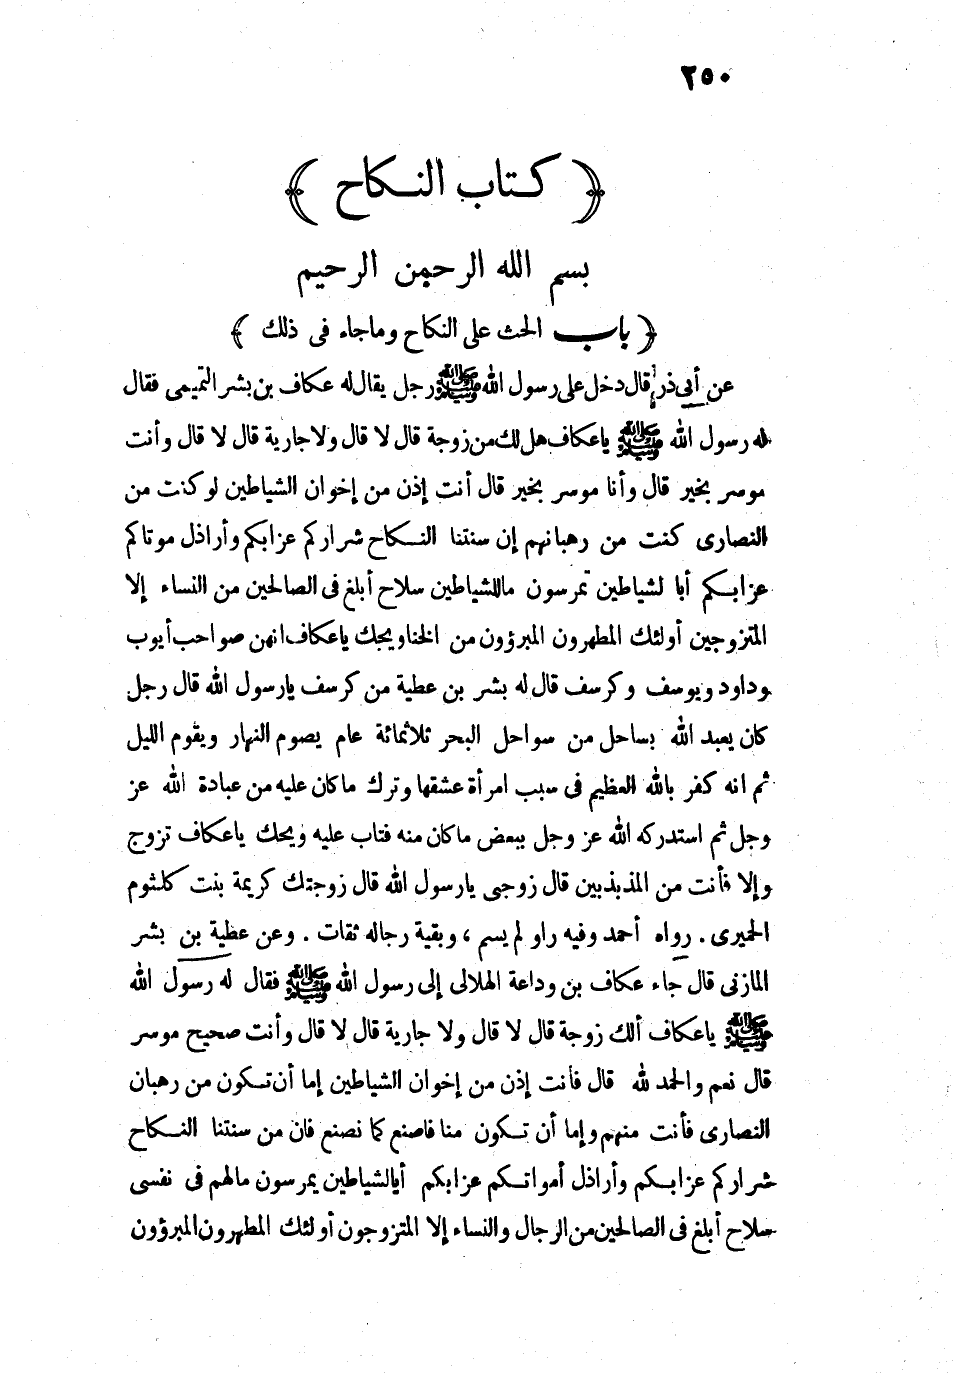 ٢٥٠
﴿ كتاب النكاح ﴾
بسم الله الرحمن الرحيم
﴿ باب الحث على النكاح وماجاء فى ذلك ﴾
عن أبى ذر قال دخل على رسول الله ﷺ رجل يقال له عكاف بن بشر التميمى فقال
له رسول الله ﷺ ياعكاف هل لك من زوجة قال لا قال ولا جارية قال لا قال وأنت
موسر بخير قال وأنا موسر بخير قال أنت إذن من إخوان الشياطين لو كنت من
النصارى كنت من رهبانهم إن سنتنا النكاح شراركم عزابكم وأراذل موتاكم
عزابكم أبا لشياطين تمرسون ماللشياطين سلاح أبلغ فى الصالحين من النساء إلا
المتزوجين أولئك المطهرون المبرؤون من الخنا ويحك ياعكاف انهن صواحب أيوب
وداود ويوسف وكرسف قال له بشر بن عطية من كرسف يارسول الله قال رجل
كان يعبد الله بساحل من سواحل البحر ثلاثمائة عام يصوم النهار ويقوم الليل
ثم انه كفر بالله العظيم فى سبب امرأة عشقها وترك ماكان عليه من عبادة الله عز
وجل ثم استدركه الله عز وجل ببعض ماكان منه فتاب عليه ويحك ياعكاف تزوج
وإلا فأنت من المذبذبين قال زوجنى يارسول الله قال زوجتك كريمة بنت كلثوم
الحميرى . رواه أحمد وفيه راو لم يسم ، وبقية رجاله ثقات . وعن عطية بن بشر
المازنى قال جاء عكاف بن وداعة الهلالى إلى رسول الله ﷺ فقال له رسول الله
ﷺ ياعكاف ألك زوجة قال لا قال ولا جارية قال لا قال وأنت صحيح موسر
قال نعم والحمد لله قال فأنت إذن من إخوان الشياطين إما أن تكون من رهبان
النصارى فأنت منهم وإما أن تكون منا فاصنع كما نصنع فان من سنتنا النكاح
شراركم عزابكم وأراذل أمواتكم عزابكم أبالشياطين يمرسون مالهم فى نفسى
سلاح أبلغ فى الصالحين من الرجال والنساء إلا المتزوجون أولئك المطهرون المبرؤون